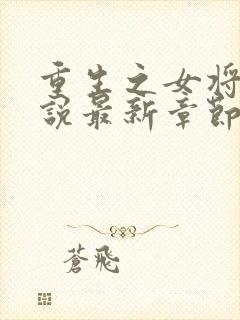 重生之女将
說最新章節
蒼飛